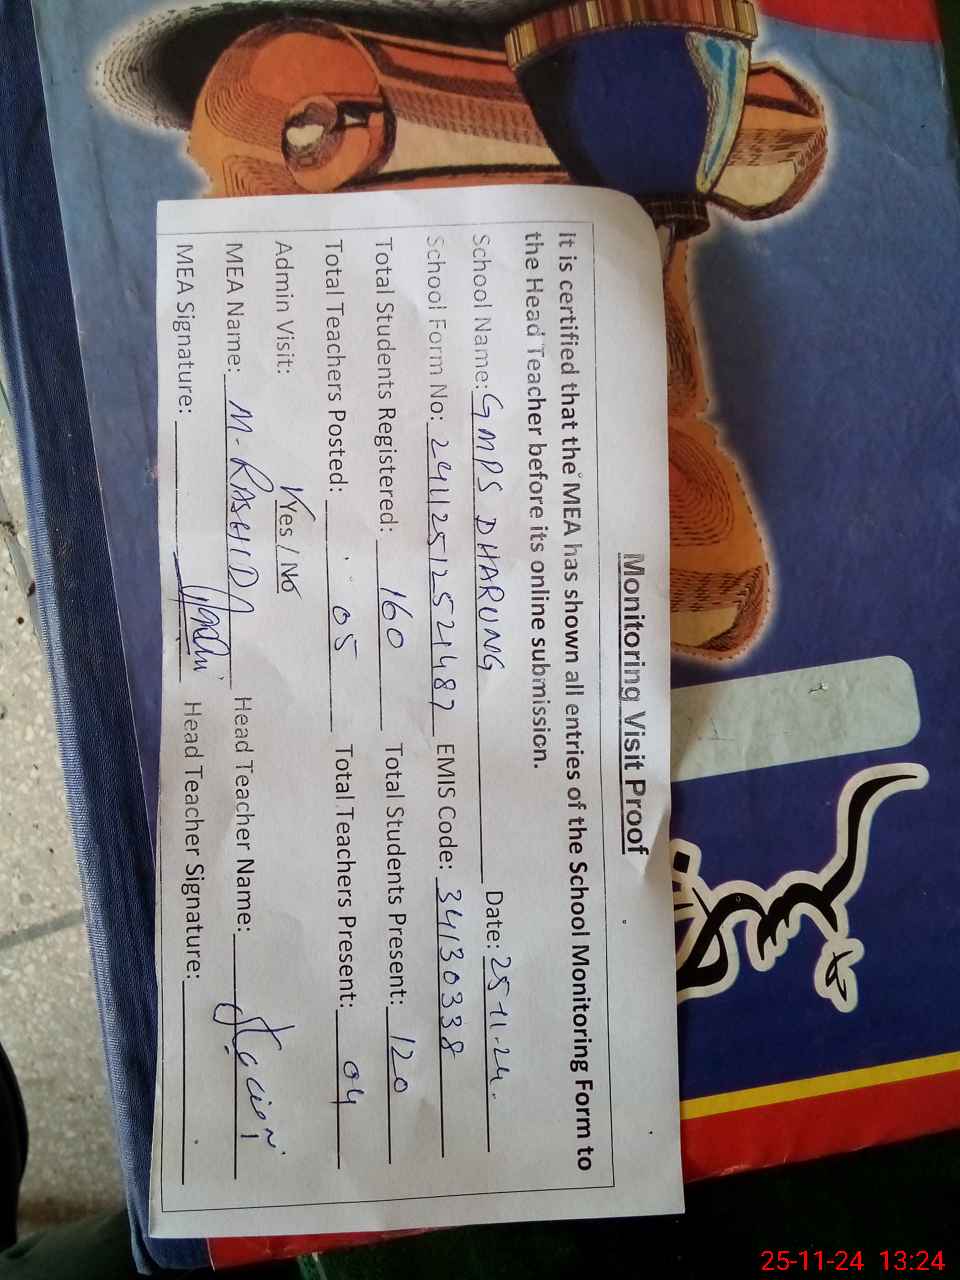 Monitoring Visit Proof
It is certified that the MEA has shown all entries of the School Monitoring Form to
the Head Teacher before its online submission.
School Name: GMPS DHARUNG Date: 25-11-24
School Form No: 24112512521487 EMIS Code: 34130338
Total Students Registered: 160 Total Students Present: 120
Total Teachers Posted: 05 Total Teachers Present: 04
Admin Visit: Yes / No
MEA Name: M. RASHID Head Teacher Name:
MEA Signature: Head Teacher Signature:
25-11-24 13:24